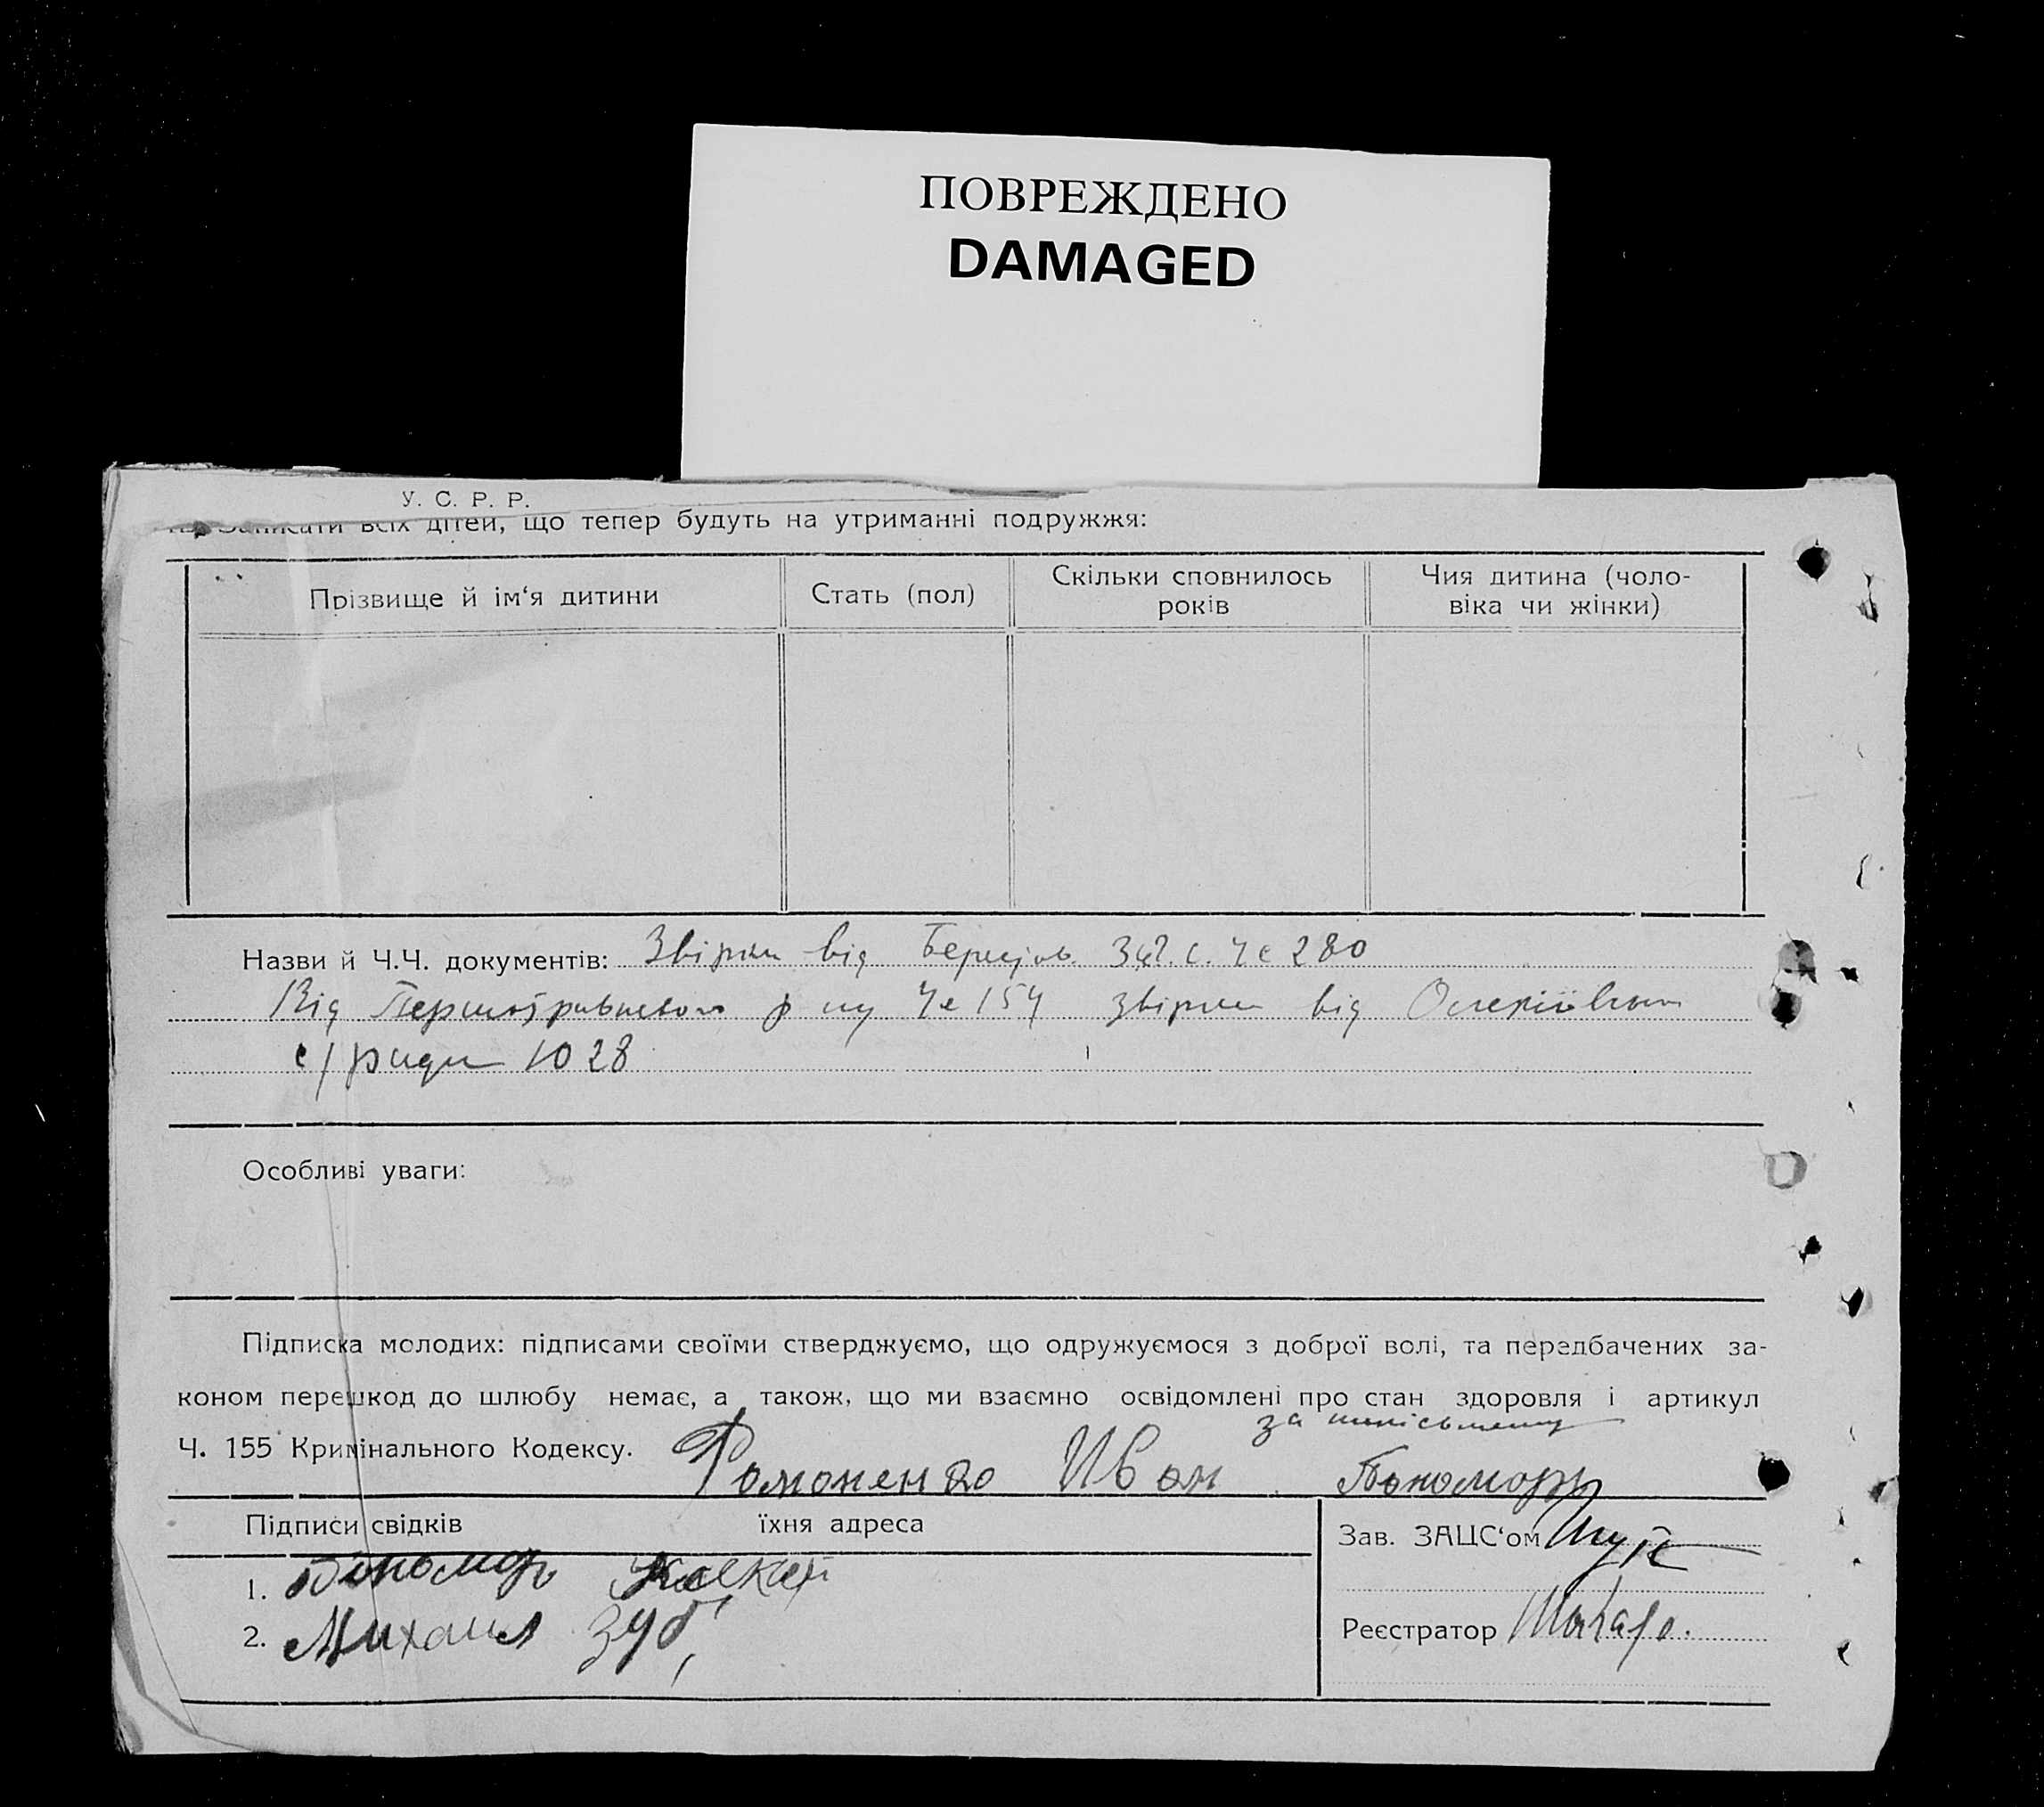 ПОВРЕЖДЕНО
DAMAGED
У. С. Р. Р.
Записати всіх дітей, що тепер будуть на утриманні подружжя:
Прізвище й ім‘я дитини
Стать (пол)
Скільки сповнилось
років
Чия дитина (чоло-
віка чи жінки)
Назви й Ч.Ч. документів: від с. 280
Від 154 від
с/ради 1028
Особливі уваги:
Підписка молодих: підписами своїми стверджуємо, що одружуємося з доброї волі, та передбачених за-
коном перешкод до шлюбу немає, а також, що ми взаємно освідомлені про стан здоровля і артикул
за
Ч. 155 Кримінального Кодексу. Фомоненко Иван Пономорь
Підписи свідків їхня адреса
Зав. ЗАЦС‘ом
1. Пономорь
2. Михаил Зуб
Реєстратор